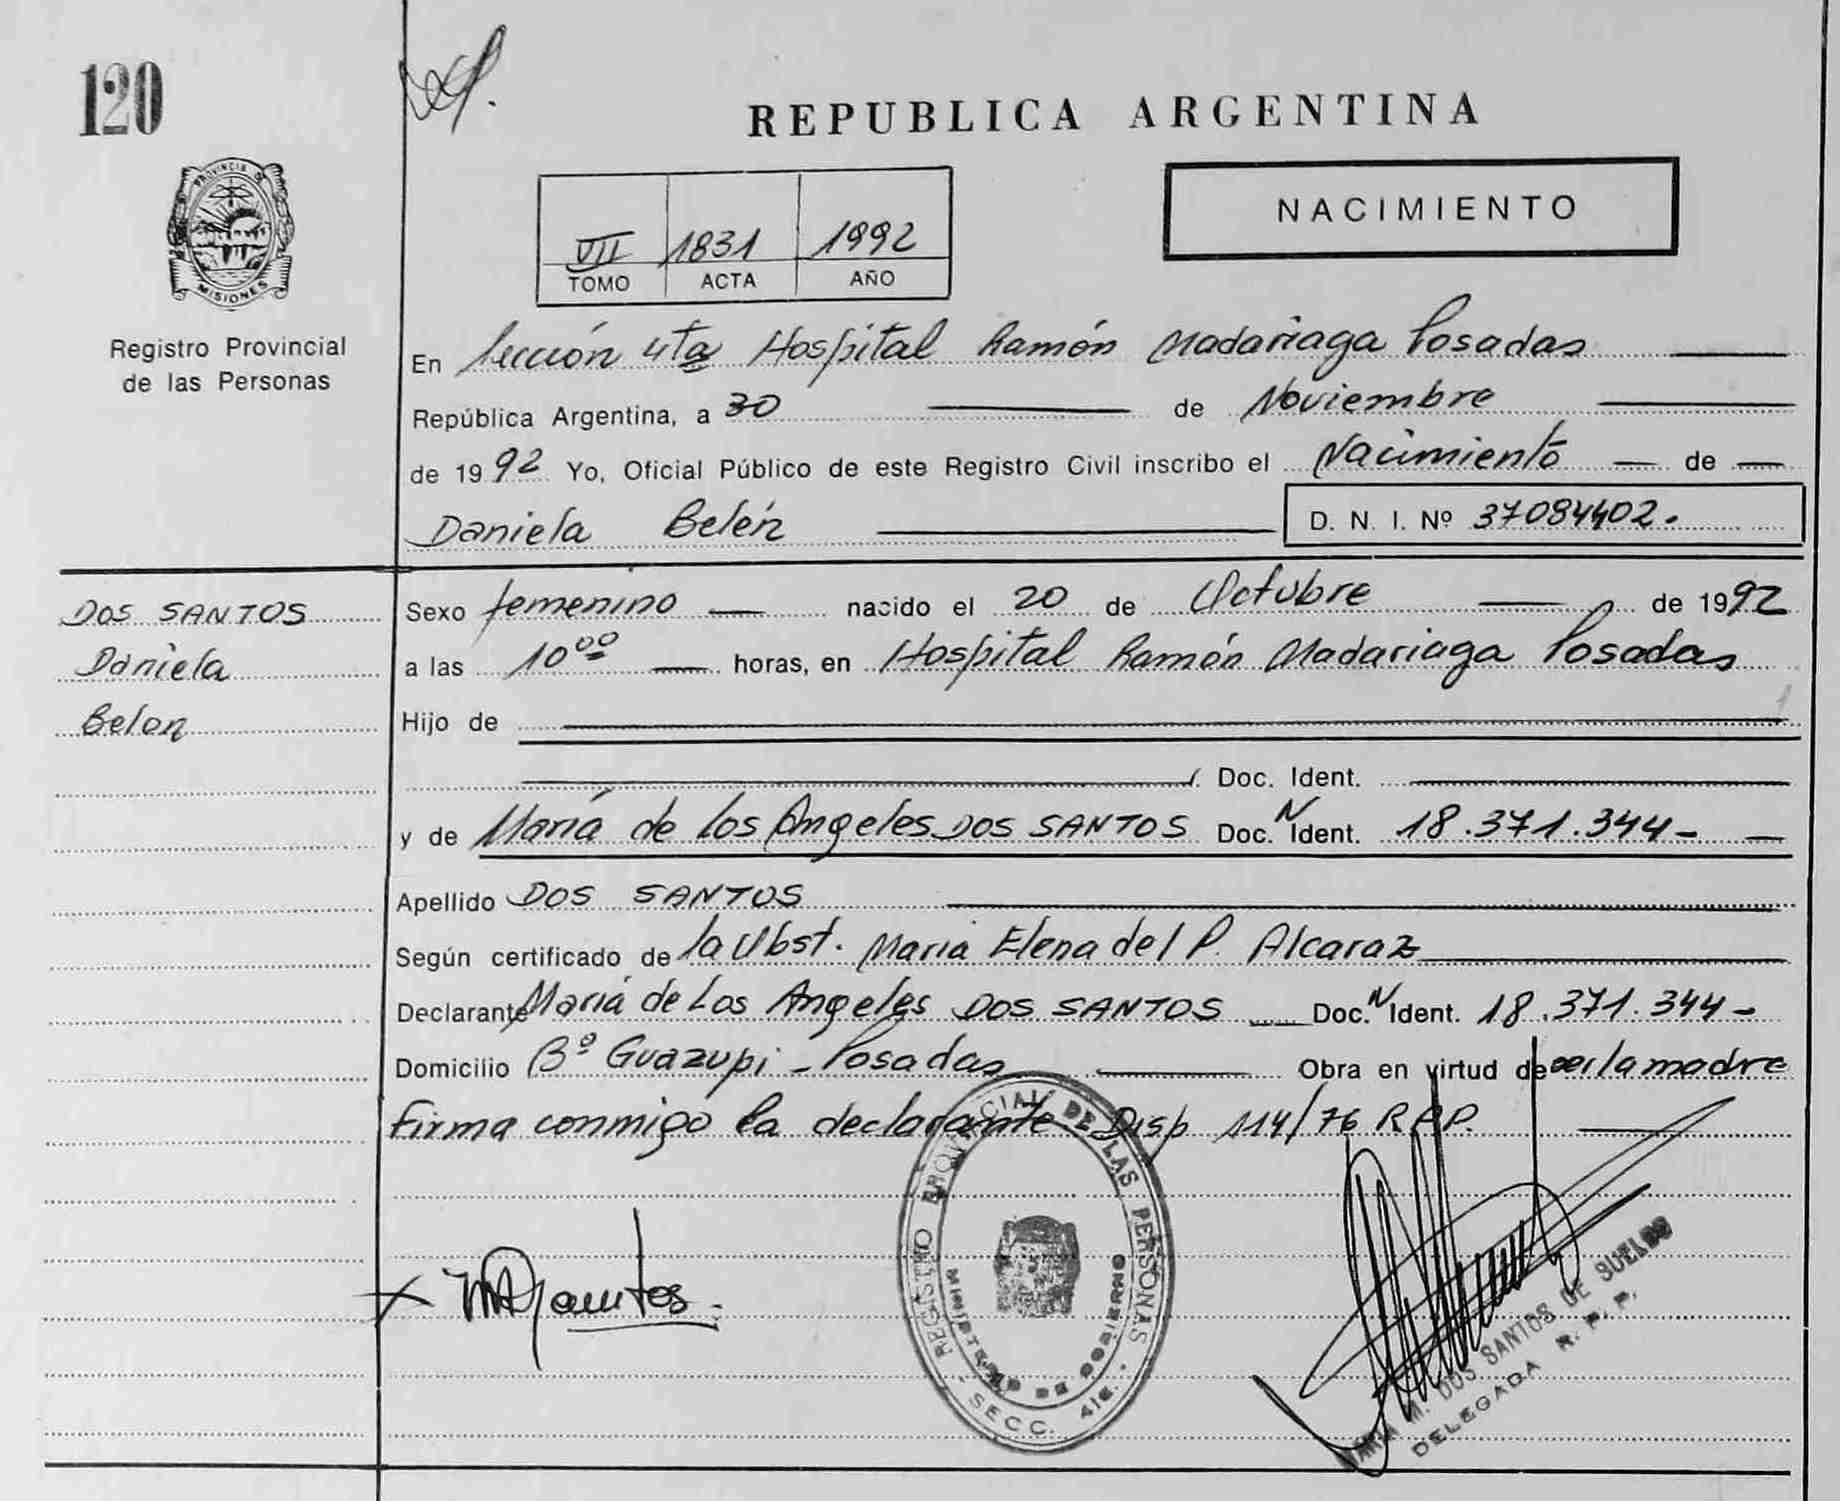 120
REPUBLICA ARGENTINA
PROVINCIA DE
MISIONES
Registro Provincial
de las Personas
VII 1831 1992
TOMO ACTA AÑO
NACIMIENTO
En Sección 4ta Hospital Ramón Madariaga Posadas
República Argentina, a 30 de Noviembre
de 1992 Yo, Oficial Público de este Registro Civil inscribo el Nacimiento de
Daniela Belén D. N. I. Nº 37084402.
DOS SANTOS
Daniela
Belen
Sexo femenino nacido el 20 de Octubre de 1992
a las 10⁰⁰ horas, en Hospital Ramón Madariaga Posadas
Hijo de
Doc. Ident.
y de María de Los Angeles DOS SANTOS Doc. N Ident. 18.371.344-
Apellido DOS SANTOS
Según certificado de la Obst. Maria Elena del P. Alcaraz
Declarante María de Los Angeles DOS SANTOS Doc. N Ident. 18.371.344-
Domicilio Bº Guazupi - Posadas Obra en virtud de ser la madre
Firma conmigo la declarante Disp 114/76 R.P.P.
REGISTRO PROVINCIAL DE LAS PERSONAS
MINISTERIO DE GOBIERNO
- SECC. 4ta. -
M. DOS SANTOS DE SUELDO
DELEGADA R. P. P.